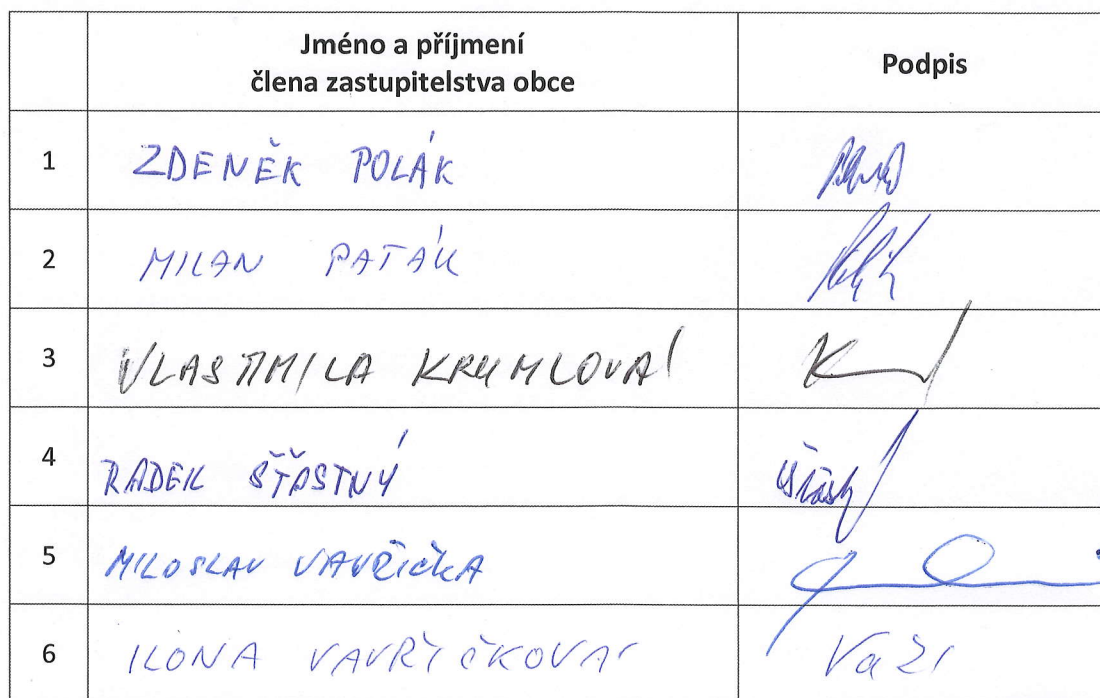 Jméno a příjmení
člena zastupitelstva obce
Podpis
1 ZDENĚK POLÁK
2 MILAN PATÁK
3 VLASTIMILA KRUMLOVÁ
4 RADEK ŠŤASTNÝ
5 MILOSLAV VAVŘIČKA
6 ILONA VAVŘIČKOVÁ